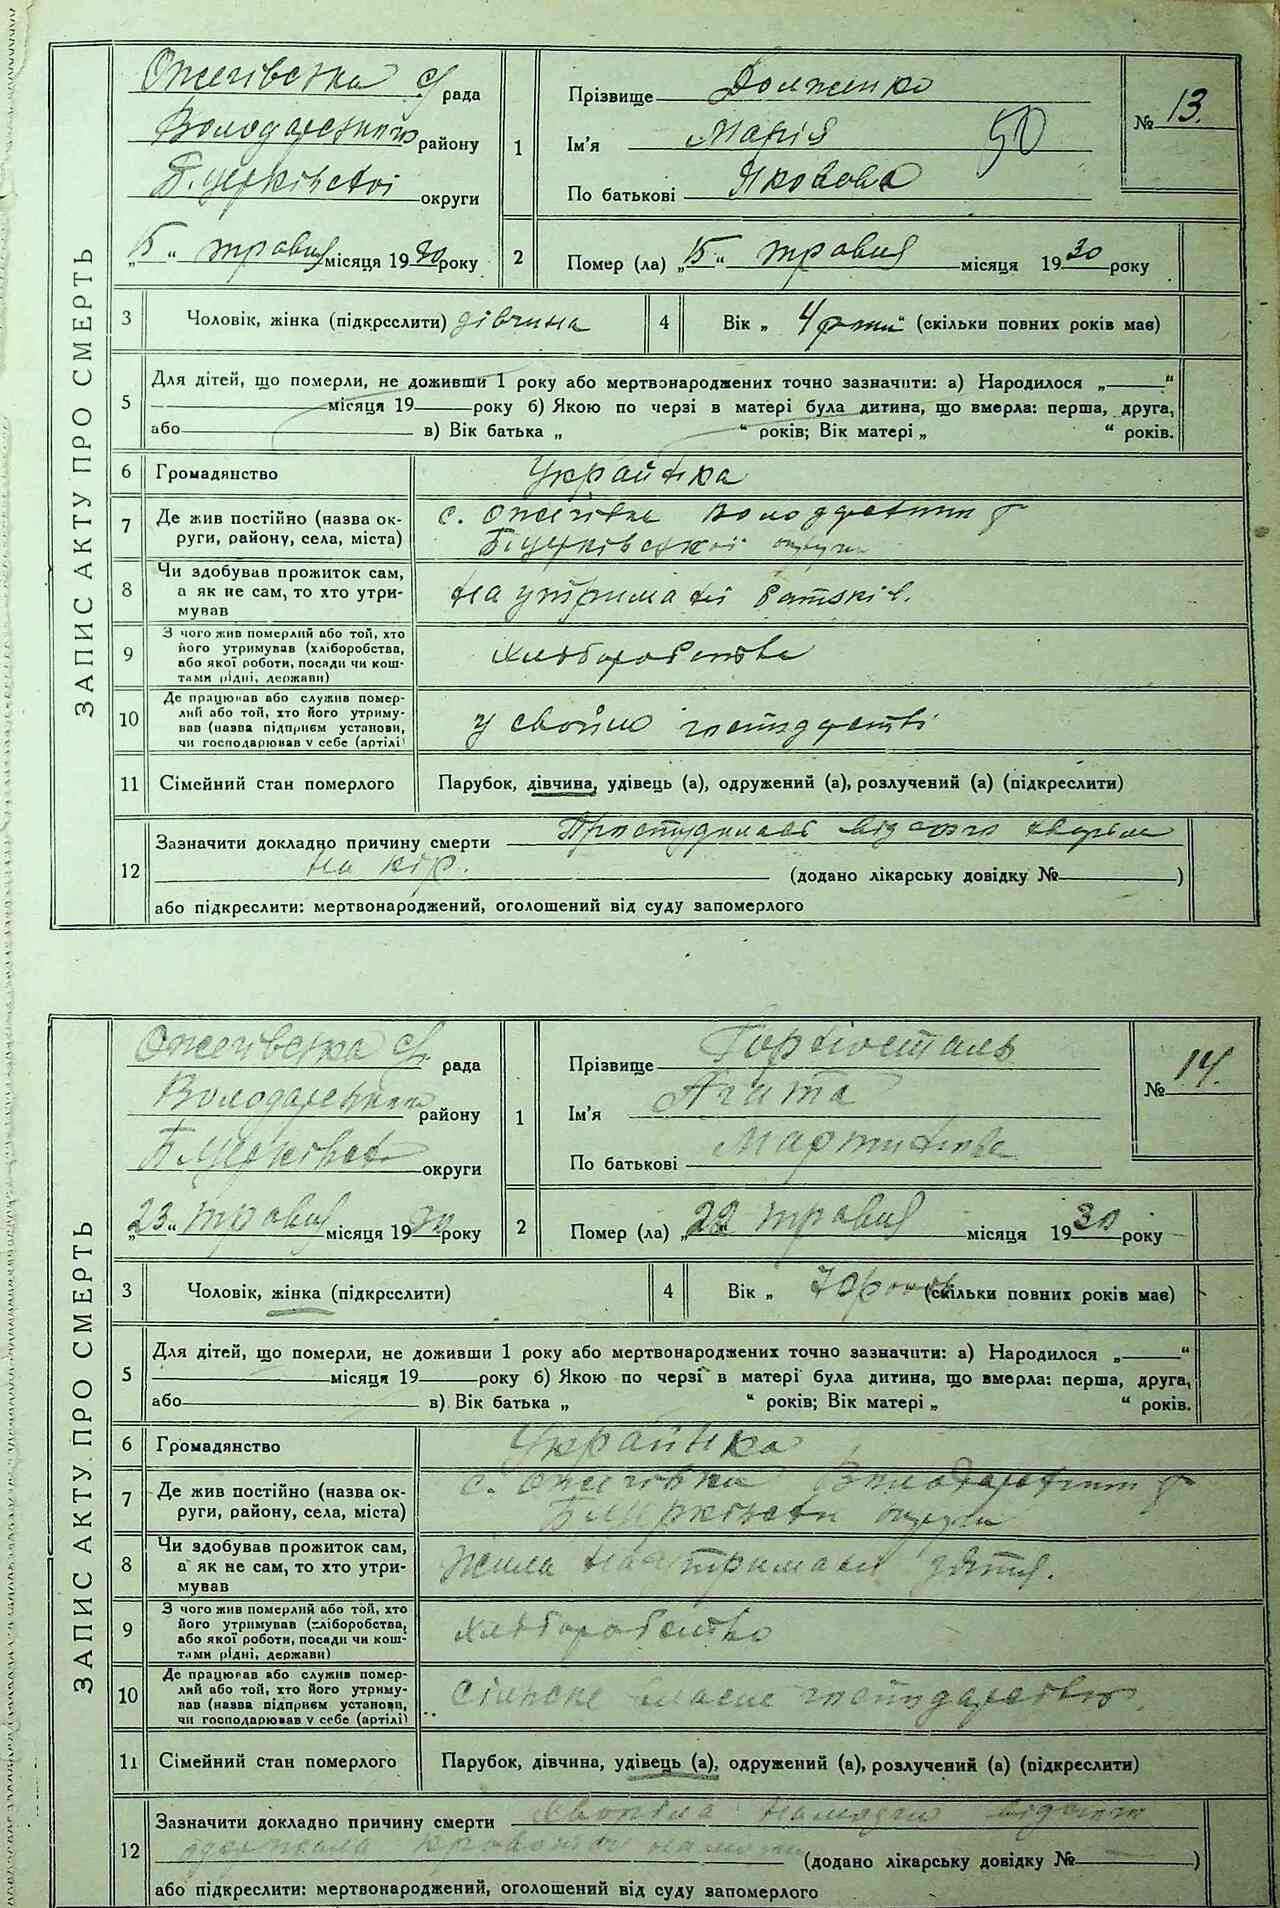 ЗАПИС АКТУ ПРО СМЕРТЬ
Ожегівська с/рада
Володарського району
Б.церківської округи
„15“ травня місяця 1930 року
1
Прізвище Долженко
Ім'я Марія
50
По батькові Яковова
№ 13.
2
Помер (ла) „15“ травня місяця 1930 року
3 Чоловік, жінка (підкреслити) дівчина
4 Вік „ 4 роки“ (скільки повних років має)
5 Для дітей, що померли, не доживши 1 року або мертвонароджених точно зазначити: а) Народилося „——“
місяця 19—— року б) Якою по черзі в матері була дитина, що вмерла: перша, друга,
або—— в) Вік батька „ “ років; Вік матері „ “ років.
6 Громадянство Українка
7 Де жив постійно (назва округи, району, села, міста) с. Ожегівка Володарського р
Б.церківської округи
8 Чи здобував прожиток сам, а як не сам, то хто утримував На утриманні батьків.
9 З чого жив померлий або той, хто його утримував (хліборобства, або якої роботи, посади чи коштами рідні, держави) Хліборобства
10 Де працював або служив померлий або той, хто його утримував (назва підприєм установи, чи господарював у себе (артілі) у свойму господарстві
11 Сімейний стан померлого Парубок, дівчина, удівець (а), одружений (а), розлучений (а) (підкреслити)
12 Зазначити докладно причину смерти Простудилась від чого хворіла
на кір. (додано лікарську довідку №——)
або підкреслити: мертвонароджений, оголошений від суду запомерлого
ЗАПИС АКТУ ПРО СМЕРТЬ
Ожегівська с/рада
Володарського району
Б.Церківської округи
„23“ травня місяця 1930 року
1
Прізвище Горносталь
Ім'я
По батькові Мартинова
№ 14.
2
Помер (ла) „22“ травня місяця 1930 року
3 Чоловік, жінка (підкреслити)
4 Вік „ 70 років (скільки повних років має)
5 Для дітей, що померли, не доживши 1 року або мертвонароджених точно зазначити: а) Народилося „——“
місяця 19—— року б) Якою по черзі в матері була дитина, що вмерла: перша, друга,
або—— в) Вік батька „ “ років; Вік матері „ “ років.
6 Громадянство Українка
7 Де жив постійно (назва округи, району, села, міста) с. Ожегівка Володарського р
Б.Церківської округи
8 Чи здобував прожиток сам, а як не сам, то хто утримував Жила на утриманні зятя.
9 З чого жив померлий або той, хто його утримував (хліборобства, або якої роботи, посади чи коштами рідні, держави) Хліборобство
10 Де працював або служив померлий або той, хто його утримував (назва підприєм установи, чи господарював у себе (артілі) Сільске власне господарство.
11 Сімейний стан померлого Парубок, дівчина, удівець (а), одружений (а), розлучений (а) (підкреслити)
12 Зазначити докладно причину смерти Хворіла
(додано лікарську довідку №——)
або підкреслити: мертвонароджений, оголошений від суду запомерлого